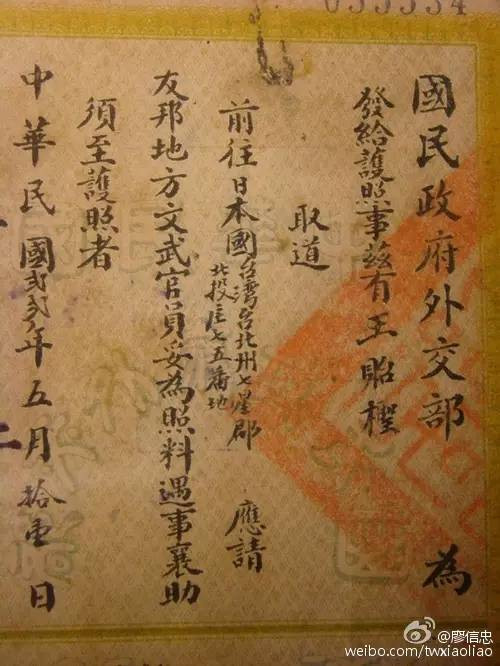 國民政府外交部 為
發給護照事茲有王貽
取道
前往日本國台湾台北州七星郡
北投庄七五番地
應請
友邦地方文武官員妥為照料遇事襄助
須至護照者
中華民國年五月拾壹日
@廖信忠
weibo.com/twxiaoliao